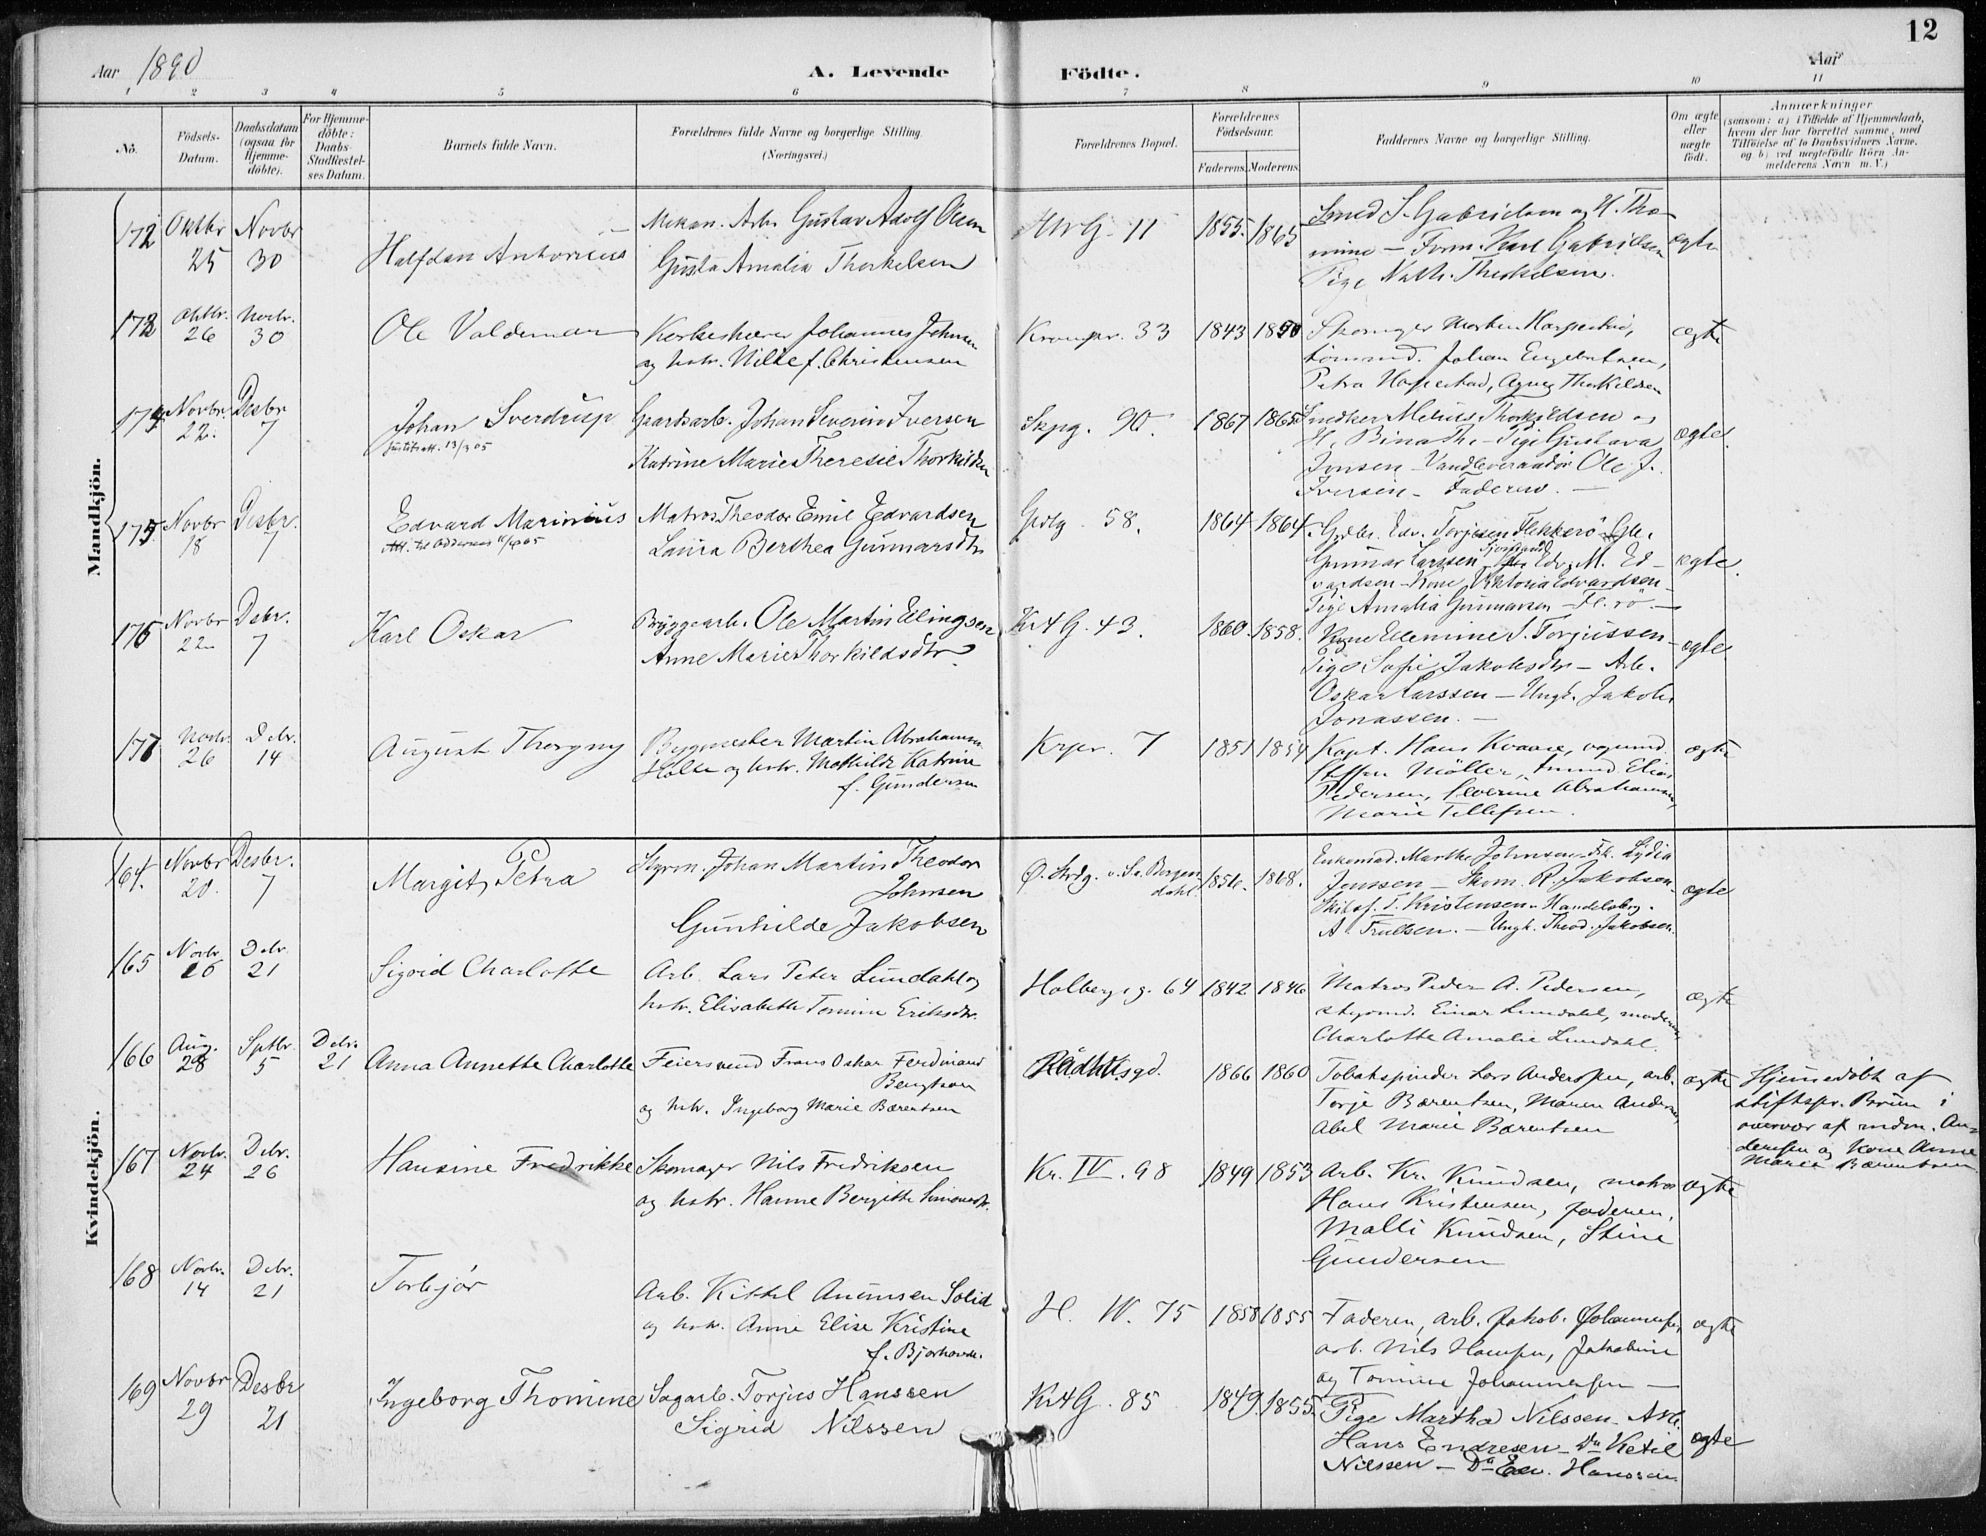 12
Aar 1890
A. Levende Födte.
Aar
1 2 3 4 5 6 7 8 9 10 11
Nò.
Födsels-Datum.
Daabsdatum (ogsaa for Hjemme-döbte).
For Hjemme-döbte: Daabs-Stadfæstel-ses Datum.
Barnets fulde Navn.
Forældrenes fulde Navne og borgerlige Stilling. (Næringsvei.)
Forældrenes Bopæl.
Forældrenes Födselsaar.
Faderens. Moderens.
Faddernes Navne og borgerlige Stilling.
Om ægte eller uægte födt.
Anmærkninger
(saasom: a) i Tilfælde af Hjemmedaab,
hvem der har forrettet samme, med
Tilföielse af to Daabsvidners Navne,
og b) ved uægtefödte Börn An-
melderens Navn m. V.)
Mandkjön.
172 Oktbr 25 Novbr 30 Halfdan Antonius
Mekan. Arb. Gustav Adolf Olsen
Gusta Amalia Thorkelsen
11 1855. 1865
Smed S. Gabrielsen og H. Tho-
mine — Form. Karl Gabrielsen
Pige Nath. Thorkelsen.
ægte
Oktbr. 26 Novbr. 30 Ole Valdemar
Korkeskærer Johannes Johnsen
og hstr. Nilke f. Christensen
Kronpr. 33 1843 1850
Skomager Morten
tömmd. Johan Engebretsen,
Petra Agnes Thorkildsen
ægte
Novbr 22. Desbr 7 Johan Sverdrup
13/3 05
Gaardsarb. Johan Severin Iversen
Katrine Marie Theresie Thorkildsen
Skpg. 90. 1867 1865
Snedker Melius Thorkildsen og
H. Bina Th. — Pige Gustava
Jensen — Vandleverandör Ole J.
Iversen — Faderen. —
ægte.
175 Novbr 18 Desbr. 7 Edvard Marinius
Att. til Oddernes
Matros Theodor Emil Edvardsen
Laura Berthea Gunnarsdtr
58. 1864 1864
Gdbr. Edv. Torjesen Flekkerö — Gbr.
Gunnar Larssen Edv. M. Ed-
vardsen — Kone Viktoria Edvardsen —
Pige Amalia Gunnarsen — Fl.rö. —
ægte.
176 Novbr 22 Debr. 7 Karl Oskar
Bryggearb. Ole Martin Ellingsen
Anne Marie Thorkildsdtr
Kr4G. 43. 1860. 1858.
Kone Edemine S. Torjussen —
Pige Sofie Jakobsdtr — Arb.
Oskar Larssen — Ungk. Jakob
Jonassen. —
ægte
177 Novbr. 26 Debr. 14 August Thorgny
Bygmester Martin Abrahamsen
Holte og hstr. Mathilde Katrine
f. Gundersen
Krpr. 7 1851 1854
Kapt. Hans Kvaase,
Steffen Möller, Elias
Pedersen, Severine Abrahamsen,
Marie Tellefsen.
ægte
Kvindekjön.
164. Novbr 20. Desbr. 7 Margit Petra
Styrm. Johan Martin Theodor
Johnsen
Gunhilde Jakobsen
Ö. Strdg. v. Sa. Bergen
dahl. 1856. 1868.
Enkemad. Marthe Johnsen — Frk. Lydia
Jenssen — Skom. R. Jakobsen —
T. Kristensen — Handelsbg.
A. Trulsen. — Ungk. Theod. Jakobsen.
ægte
165 Novbr. 26 Debr. 21 Sigrid Charlotte
Arb. Lars Peter Lundahl og
hstr. Elisabeth Tomine Eriksdtr.
Holbergsg. 64 1842 1846
Matros Peder A. Pedersen,
styrmd. Einar Lundahl, moderen,
Charlotte Amalie Lundahl.
ægte
166 Aug. 28 Sptbr. 5 Debr. 21 Anna Annette Charlotte
Feiersvend Frans Oskar Ferdinand
Bengtson
og hstr. Ingeborg Marie Bærentsen
Rådhusgd. 1866 1860
Tobakspinder Lars Andersen, arb.
Torje Bærentsen, Maren Andersen,
Abel Marie Bærentsen
ægte
Hjemedöbt af
stiftspr. Bruun i
overvær af mdm. An-
dersen og Kone Anne
Marie Bærentsen
167 Novbr. 24 Debr. 26 Hansine Fredrikke
Skomager Nils Fredriksen
og hstr. Hanne Bergitte Simonsdtr.
Kr. IV. 98 1849 1853
Arb. Kr. Knudsen, matros
Hans Kristensen, faderen,
Malli Knudsen, Stine
Gundersen
ægte
168 Novbr. 14 Debr. 21 Torbjör
Arb. Kittel Anunsen Solid
og hstr. Anne Elise Kristine
f. Bjorhovde.
H. W. 75 1858 1855
Faderen, arb. Jakob Johannesen,
arb. Nils Hansen, Jakobine
og Tomine Johannesen —
ægte
169 Novbr 29 Desbr 21 Ingeborg Thomine
Sagarb. Torjus Hanssen
Sigrid Nilssen
Kr4G. 85 1849. 1855.
Pige Martha Nilssen — Arb.
Hans Endresen — Do Ketil
Nilssen — Do Edv. Hanssen
ægte